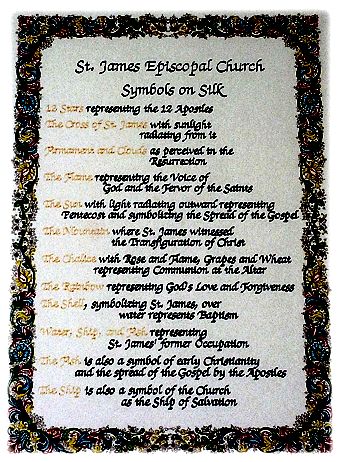 St. James Episcopal Church
Symbols on Silk
12 Stars representing the 12 Apostles
The Cross of St. James with sunlight
radiating from it
Firmament and Clouds as perceived in the
Resurrection
The Flame representing the Voice of
God and the Fervor of the Saints
The Sun with light radiating outward representing
Pentecost and symbolizing the Spread of the Gospel
The Mountain where St. James witnessed
the Transfiguration of Christ
The Chalice with Rose and Flame, Grapes and Wheat
representing Communion at the Altar
The Rainbow representing God's Love and Forgiveness
The Shell, symbolizing St. James, over
water represents Baptism
Water, Ship, and Fish representing
St. James' former Occupation
The Fish is also a symbol of early Christianity
and the spread of the Gospel by the Apostles
The Ship is also a symbol of the Church
as the Ship of Salvation